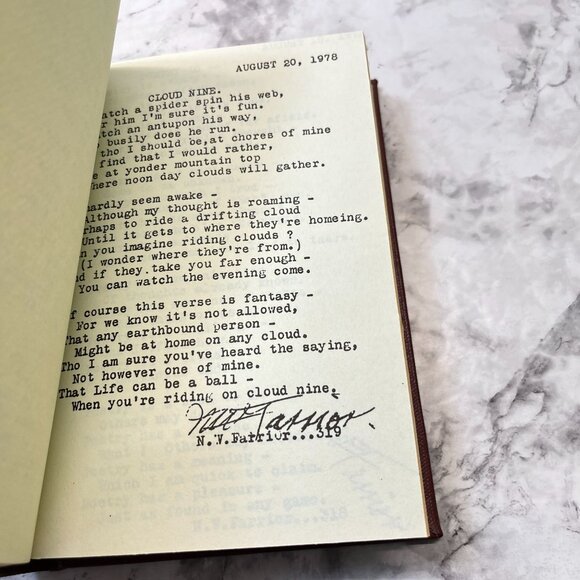 AUGUST 20, 1978
CLOUD NINE.
atch a spider spin his web,
r him I'm sure it's fun.
tch an antupon his way,
busily does he run.
tho I should be,at chores of mine
find that I would rather,
e at yonder mountain top
here noon day clouds will gather.
ardly seem awake -
Although my thought is roaming -
rhaps to ride a drifting cloud
Until it gets to where they're homeing.
n you imagine riding clouds ?
(I wonder where they're from.)
nd if they.take you far enough -
You can watch the evening come.
f course this verse is fantasy -
For we know it's not allowed,
That any earthbound person -
Might be at home on any cloud.
Tho I am sure you've heard the saying,
Not however one of mine.
That Life can be a ball -
When you're riding on cloud nine.
N.V. Farrior
N.V.Farrior...319
Which I am quick to claim.
Poetry has a pleasure -
as found in any game.
N.V.Farrior...318